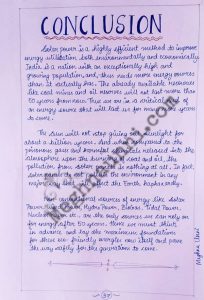 CONCLUSION
Solar power is a highly efficient method to improve
energy utilisation, both environmentally and economically.
India is a nation with an exceptionally high and
growing population, and thus needs more energy sources
than it actually has. The already available resources
like coal mines and oil reserves will not last more than
50 years from now. Thus we are in a critical need of
an energy source that will last us for many more years
to come.
The Sun will not stop giving out sunlight for
about a billion years. And when compared to the
poisonous gases and harmful chemicals released into the
atmosphere upon the burning of coal and oil, the
pollution from solar power is nothing at all. In fact,
solar power does not pollute the environment in any
major way that will affect the Earth haphazardly.
sources of energy like Solar
Power, Hydro Power, Biomass, Tidal Power,
Nuclear etc. are the only sources we can rely on
for energy after 50 years. Hence we must think
in advance, and lay the maximum foundation
for these eco-friendly energies now itself and pave
the way safely for the generations to come.
Meghna Unni
37